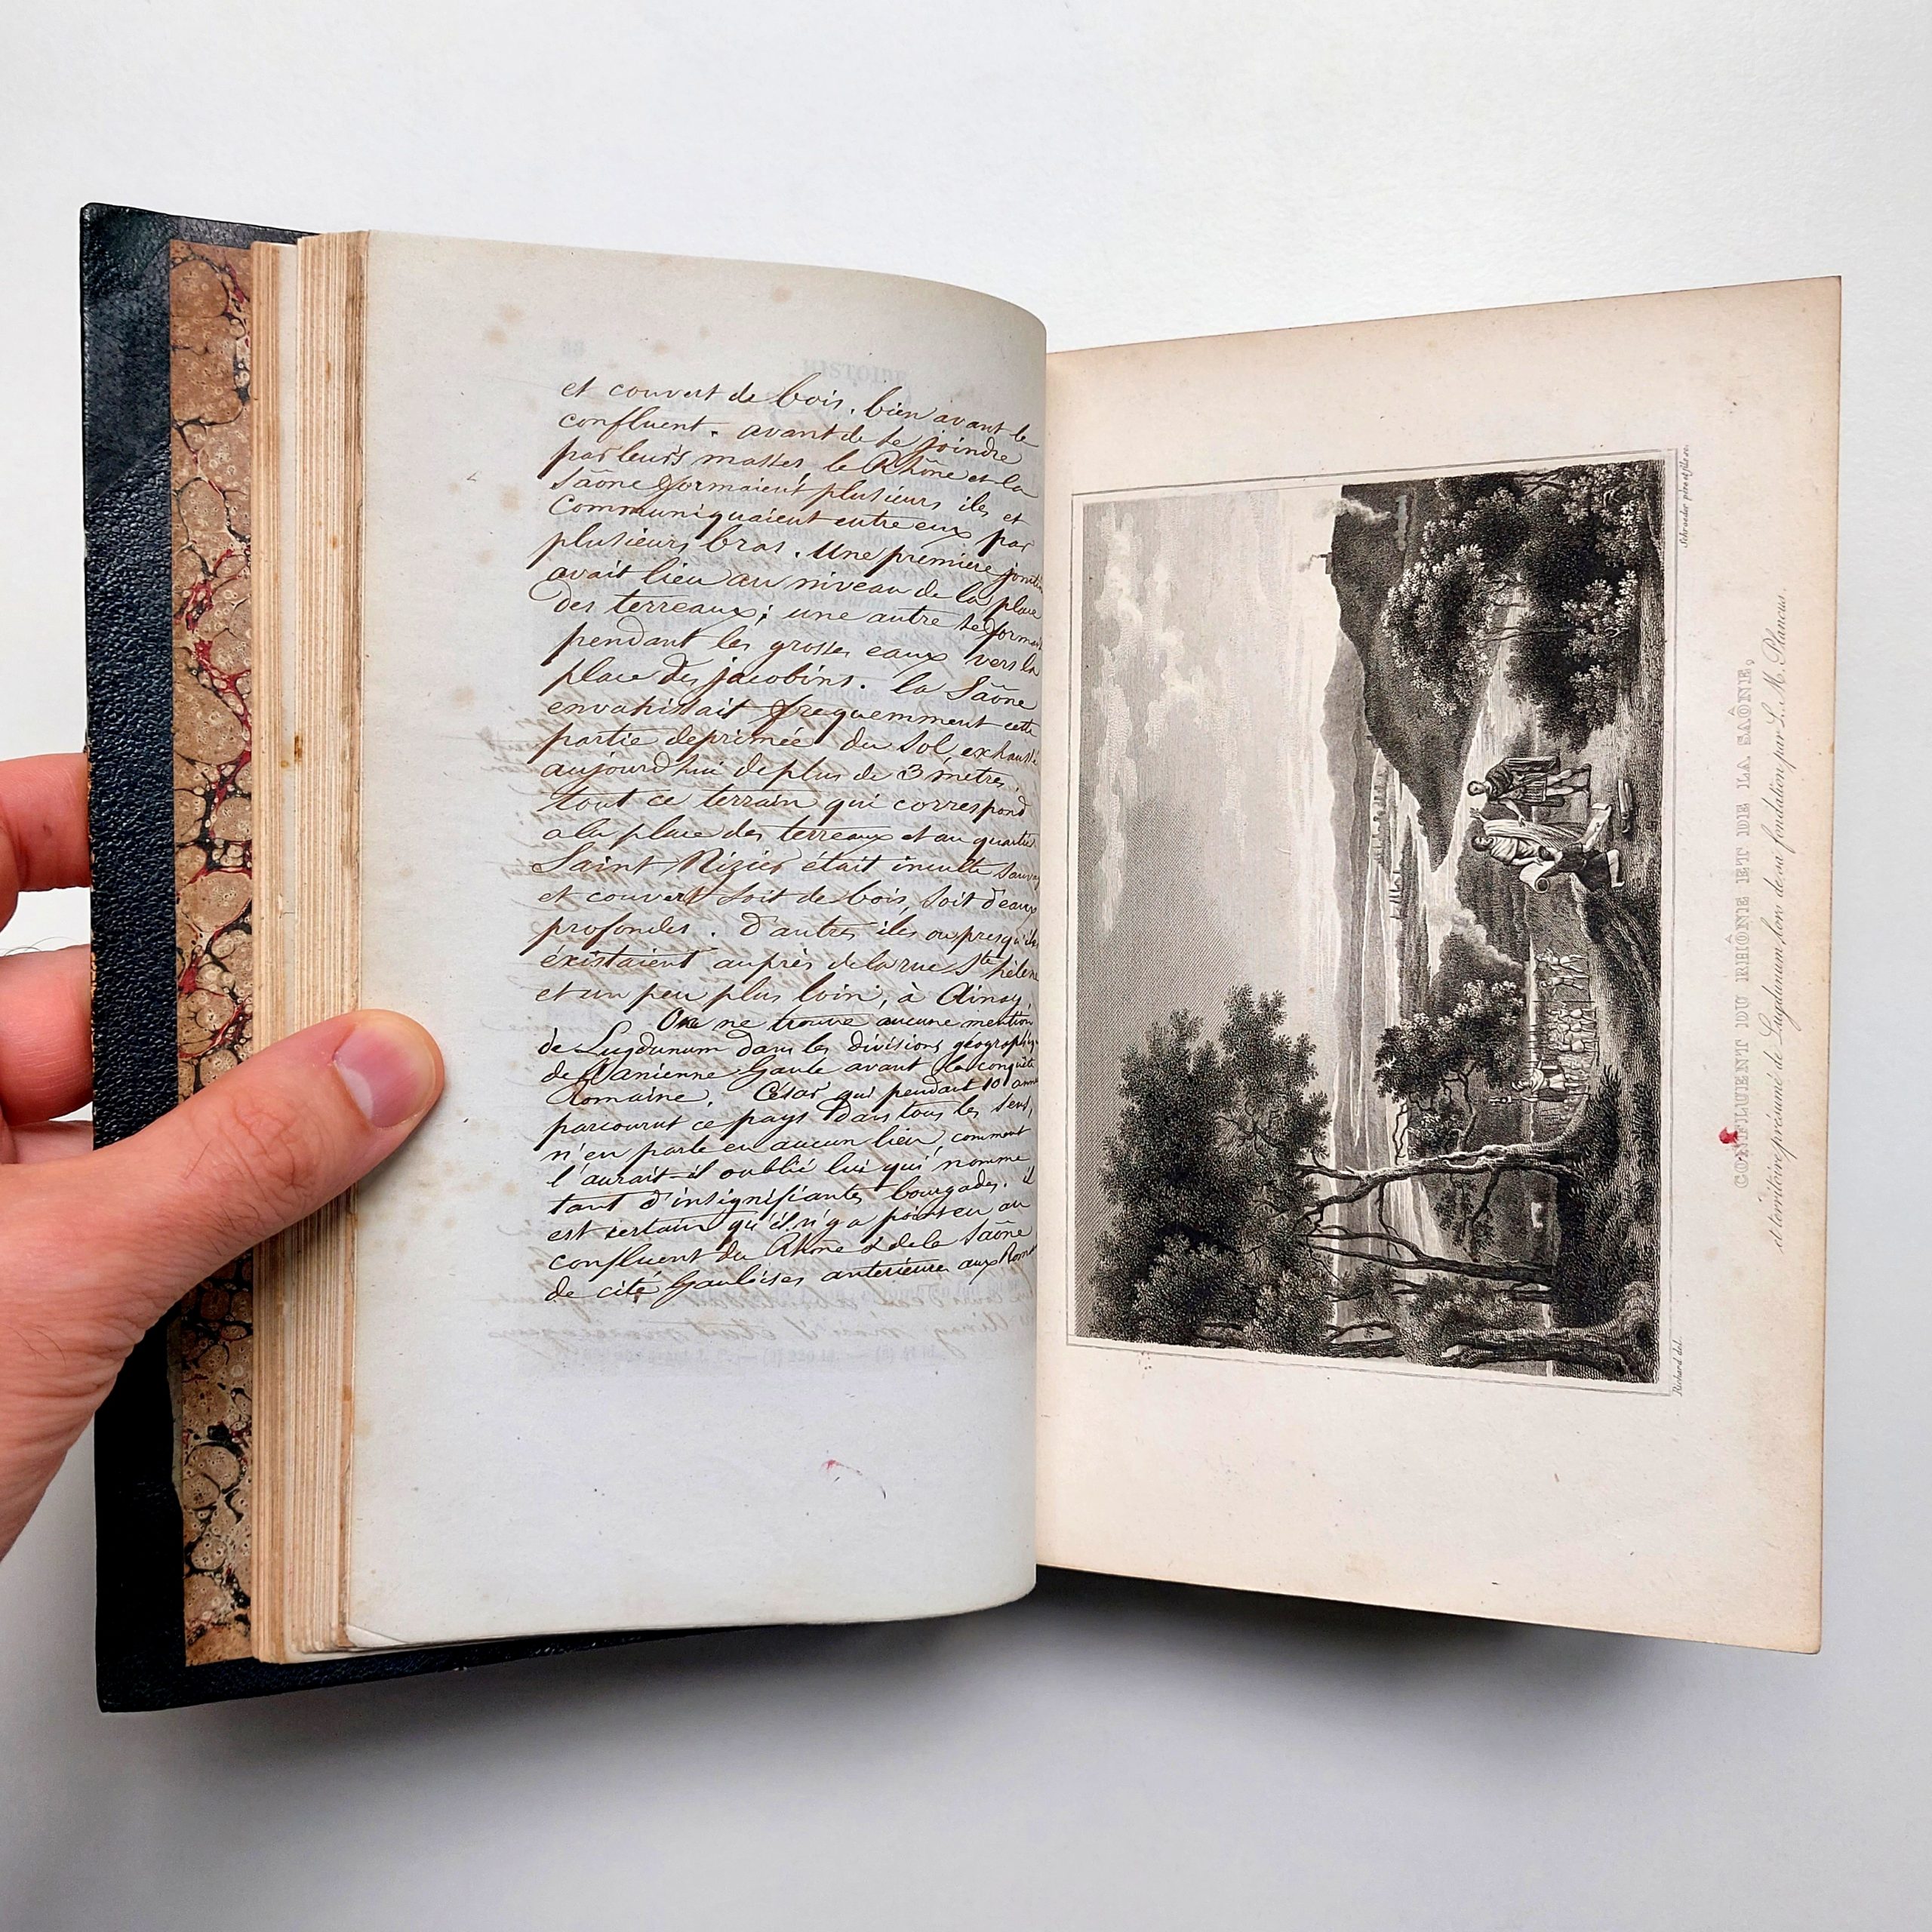 et couvert de bois. bien avant le
confluent. avant de se joindre
par leurs masses, le Rhône et la
Saône formaient plusieurs iles et
Communiquaient entre eux par
plusieurs bras. Une première
avait lieu au niveau de la place
des terreaux; une autre se
pendant les grosses eaux vers la
place des jacobins. la Saône
envahissait frequemment cette
partie deprimée du sol,
aujourd'hui de plus de 3 metres.
tout ce terrain qui correspond
a la place des terreaux et au quartier
Saint Nizier était inculte
et couvert soit de bois, soit d'eaux
profondes. D'autres iles ou
éxistaient auprès de la rue Ste hélène
et un peu plus loin, à Ainay.
On ne trouve aucune mention
de Lugdunum dans les divisions
de l'anienne Gaule avant la conquête
Romaine. César qui pendant 10
parcourut ce pays dans tous les sens,
n'en parle en aucun lieu, comment
l'aurait-il oublié lui qui nomme
tant d'insignifiantes bourgades. il
est certain qu'il n'y a point eu au
confluent du Rhône & de la Saône
de cité Gauloises anterieure aux
HISTOIRE
Schroeder père et fils sc.
Richard del.
CONFLUENT DU RHÔNE ET DE LA SAÔNE,
et territoire présumé de Lugdunum lors de sa fondation par L. M. Plancus.